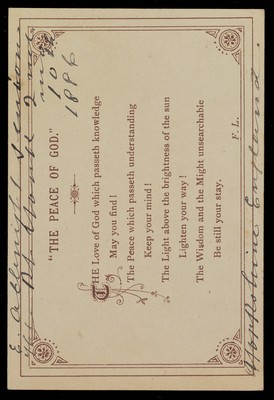 "THE PEACE OF GOD."
THE Love of God which passeth knowledge
May you find!
The Peace which passeth understanding
Keep your mind!
The Light above the brightness of the sun
Lighten your way!
The Wisdom and the Might unsearchable
Be still your stay.
F. L.
E. A.
10
1886
England.